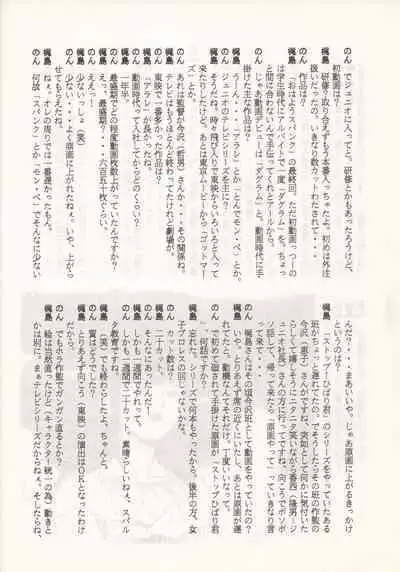 のん でジュニオに入ってと。研修とかもあったろうけど、
初動画って・・・・。
梶島 研修？取り合えずもう本番入っちゃたよ。初めは外注
扱いだったの。いきなり数カットわたされて・・・
「おはようスパンク」の最終回。ただ初動画っつーの
は学生時代にアルバイトで一度「ダグラム」を、ちょっ
と間に合わないんで手伝ってくれとアールから。
のん じゃあ動画デビューは「ダグラム」と、動画時代に手
掛けた主な作品は？
梶島 うーん・・・「アラレ」と「とんでモン・ペ」とか。
のん ジュニオのテレビシリーズを主に？
梶島 そうだね。時々飛び入りで東映からいろいろと入って
来たりしたけど。あとは東京ムービーから「ゴットマー
ズ」とか。
のん あれは監督が今沢（哲男）さんか・・・その関係ね。
梶島 テレビはもうほとんど終わってたけれど劇場が。
のん 東映で一番多かった作品は？
梶島 「アラレ」が長かったなぁ。
のん 動画時代って入社してからどのくらい？
梶島 一年半。
のん 最盛期でどの程度動画枚数上がっていたんですか？
梶島 えっ、最盛期？・・・六百五十枚ぐらい。
のん ええっ！
梶島 少ないっしょ。（笑）
のん 少ない・・・よく原画に上がれたなぁ。いや、上がら
せてもらえたなぁ。
梶島 ねぇ。オレの周りでは一番遅かったもん。
のん 何故「スパンク」とか「モン・ペ」でそんなに少ない
んだ？・・・まあいいや。じゃあ原画に上がるきっかけ
というのは？
梶島 「ストップ！ひばり君」のシリーズをやっていたある
班がちょっと遅れてたの。でそうしたらその班の作監の
今沢（恵子）さんがですね、突如として何かに気付いた
らしくて嬉しそうにニタニタ笑いながら香西（隆男＝ジ
ュニオ社長）さんの方に行ってですね、向こうでボソボ
ソ話して、帰って来て一言「原画やって」っていきなり言
って来て・・・。
のん 梶島さんはその頃今沢班として動画をやっていたの？
梶島 いや、とりあえず席の近くにいたし、あとは原画が遅
れてたと。動機なんてそれだけ。丁度いいなって。
のん で初めて総されて手掛けた原画が「ストップひばり君
」、何話ですか？
梶島 忘れた。シリーズで何本もやったから、後半の方、女
子プロレスの回じゃないかな。
のん カット数は？
梶島 二十カット。
のん そんなにあったんだ！
梶島 しかも一週間でやれって。
のん しかも一週間で二十カット、素晴らしいねぇ。スパル
タ教育ですねぇ。
梶島 （笑）でも終わらしたよ、ちゃんと。
のん 質はどうでした？
梶島 とりあえず向こう（東映）の演出はOKとなったわけ
だから。
のん でもホラ作監でガンガン直るとか？
梶島 絵は当然直ったけど（キャラクター統一の為）動きと
かは別に。まぁテレビシリーズだからねぇ。そしたらね、